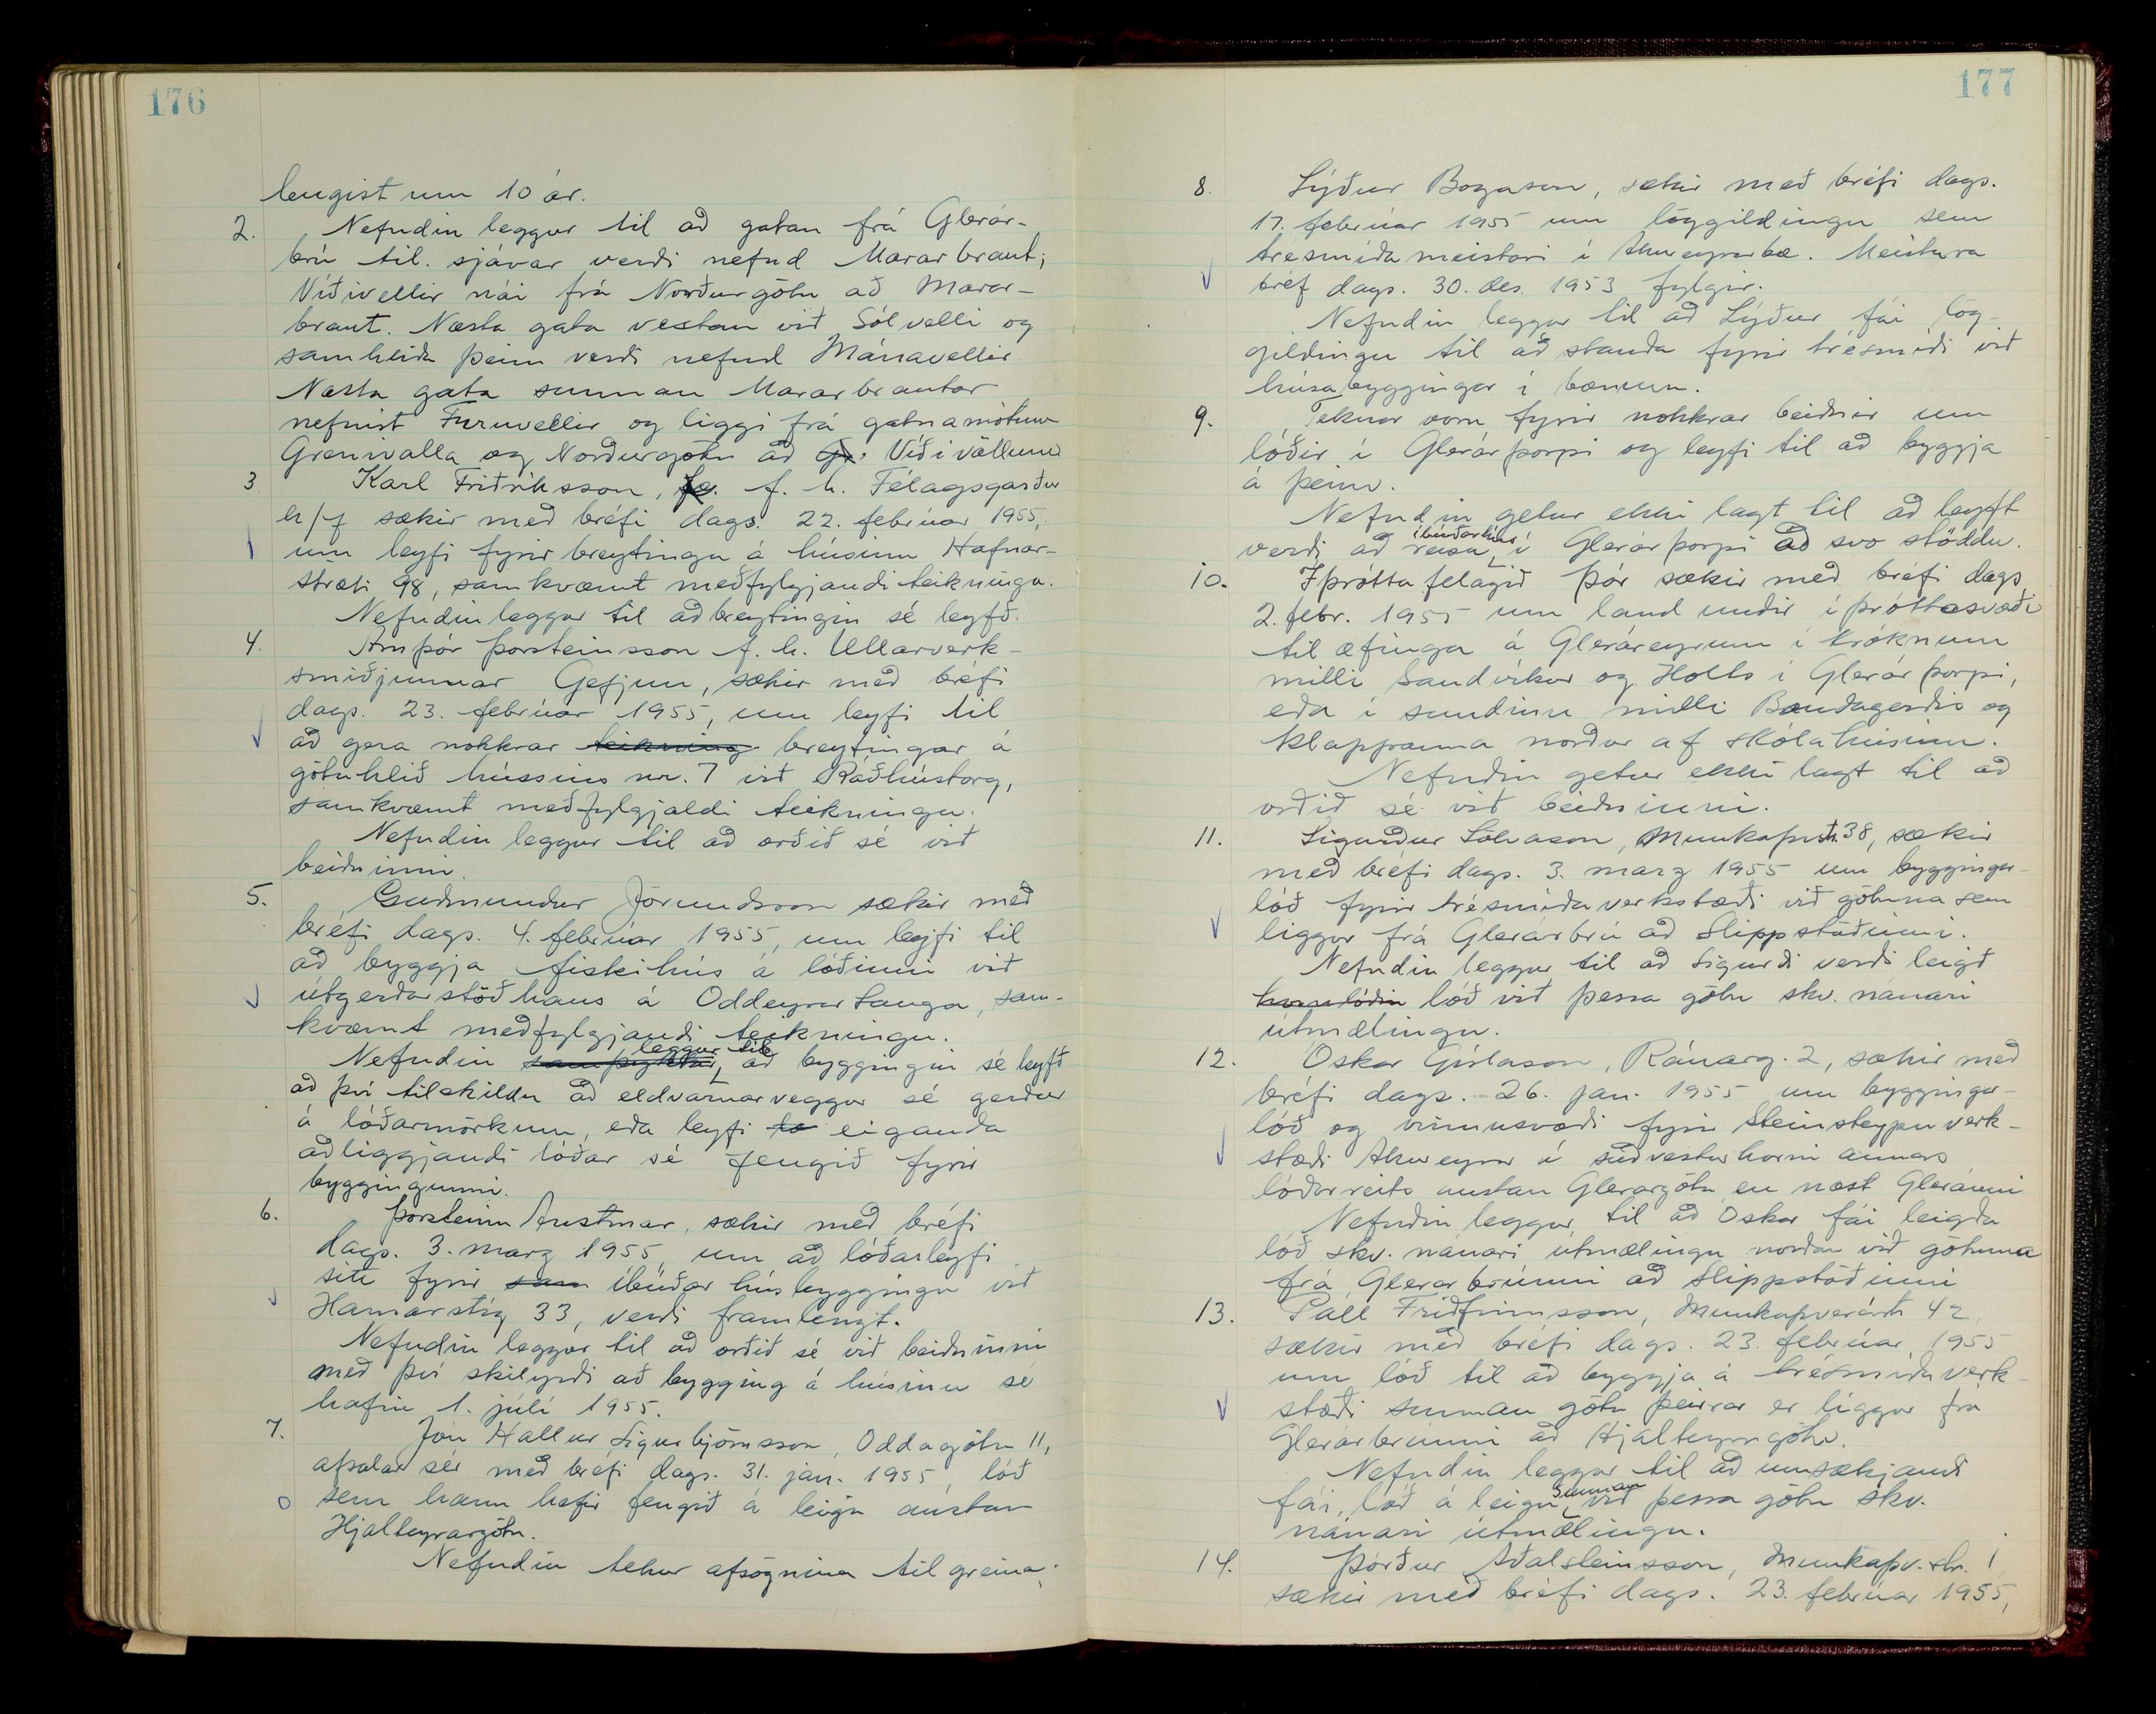 176
lengist um 10 ár.
2. Nefndin leggur til að gatan frá Glerár-
brú til sjávar verði nefnd Mararbraut;
Víðivellir nái frá Norðurgötu að Marar-
braut. Næsta gata vestan við Sólvelli og
samhliða þeim verði nefnd Mánavellir
Næsta gata sunnan Mararbrautar
nefnist Furuvellir og liggi frá gatnamótum
Grenivalla og Norðurgötu að Víðivöllum
3. Karl Friðriksson, f. h. Félagsgarður
h/f sækir með bréfi dags. 22. febrúar 1955,
um leyfi fyrir breytingu á húsinu Hafnar-
stræti 98, samkvæmt meðfylgjandi teikningu.
Nefndin leggur til að breytingin sé leyfð.
4. Arnþór Þorsteinsson f. h. Ullarverk-
smiðjunnar Gefjun, sækir með bréfi
dags. 23. febrúar 1955, um leyfi til
að gera nokkrar teikning breytingar á
götuhlið hússins nr. 7 við Ráðhústorg,
samkvæmt meðfylgjaldi teikningu.
Nefndin leggur til að orðið sé við
beiðninni.
5. Guðmundur Jörundsson sækir með
bréfi dags. 4. febrúar 1955, um leyfi til
að byggja fiskihús á lóðinni við
útgerðarstöð hans á Oddeyrartanga, sam-
kvæmt meðfylgjandi teikningu.
Nefndin samþykkir leggur til að byggingin sé leyfð
að því tilskildu að eldvarnarveggur sé gerður
á lóðarmörkum, eða leyfi lo eiganda
aðliggjandi lóðar sé fengið fyrir
byggingunni.
6. Þorsteinn Austmar, sækir með bréfi
dags. 3. marz 1955, um að lóðarleyfi
sitt fyrir sam íbúðarhúsbyggingu við
Hamarstíg 33, verði framlengt.
Nefndin leggur til að orðið sé við beiðninni
með því skilyrði að bygging á húsinu sé
hafin 1. júlí 1955.
7. Jón Hallur Sigurbjörnsson, Oddagötu 11,
afsalar sér með bréfi dags. 31. jan. 1955 lóð
sem hann hefir fengið á leigu austan
Hjalteyrargötu.
Nefndin tekur afsögnina til greina.
177
8. Lýður Bogason, sækir með bréfi dags.
17. febrúar 1955 um löggildingu sem
trésmíðameistari í Akureyrarbæ. Meistara
bréf dags. 30. des. 1953 fylgir.
Nefndin leggur til að Lýður fái lög-
gildingu til að standa fyrir trésmíði við
húsabyggingar í bænum.
9. Teknar voru fyrir nokkrar beiðnir um
lóðir í Glerárþorpi og leyfi til að byggja
á þeim.
Nefndin getur ekki lagt til að leyft
verði að reisa íbúðarhús í Glerárþorpi að svo stöddu.
10. Íþróttafélagið Þór sækir með bréfi dags
2. febr. 1955 um land undir íþróttasvæði
til æfinga á Gleráreyrum í króknum
milli Sandvíkur og Holts í Glerárþorpi,
eða í sundinu milli Bandagerðis og
klappanna norður af skólahúsinu.
Nefndin getur ekki lagt til að
orðið sé við beiðninni.
11. Sigurður Sölvason, Munkaþ.str. 38, sækir
með bréfi dags. 3. marz 1955 um byggingar-
lóð fyrir trésmíðaverkstæði við götuna sem
liggur frá Glerárbrú að Slippstöðinni.
Nefndin leggur til að Sigurði verði leigð
hornlóðin lóð við þessa götu skv. nánari
útmælingu.
12. Óskar Gíslason, Ránarg. 2, sækir með
bréfi dags. 26. jan. 1955 um byggingar-
lóð og vinnusvæði fyrir Steinsteypuverk-
stæði Akureyrar á suðvesturhorni annars
lóðarreits austan Glerárgötu en næst Gleránni
Nefndin leggur til að Óskar fái leigða
lóð skv. nánari útmælingu norðan við götuna
frá Glerárbrúnni að Slippstöðinni
13. Páll Friðfinnsson, Munkaþverárstr 42,
sækir með bréfi dags. 23. febrúar 1955
um lóð til að byggja á trésmíðaverk-
stæði sunnan götu þeirrar er liggur frá
Glerárbrúnni að Hjalteyrargötu.
Nefndin leggur til að umsækjandi
fái lóð á leigu sunnan við þessa götu skv.
nánari útmælingu.
14. Þórður Aðalsteinsson, Munkaþv.str. 1
sækir með bréfi dags. 23. febrúar 1955,